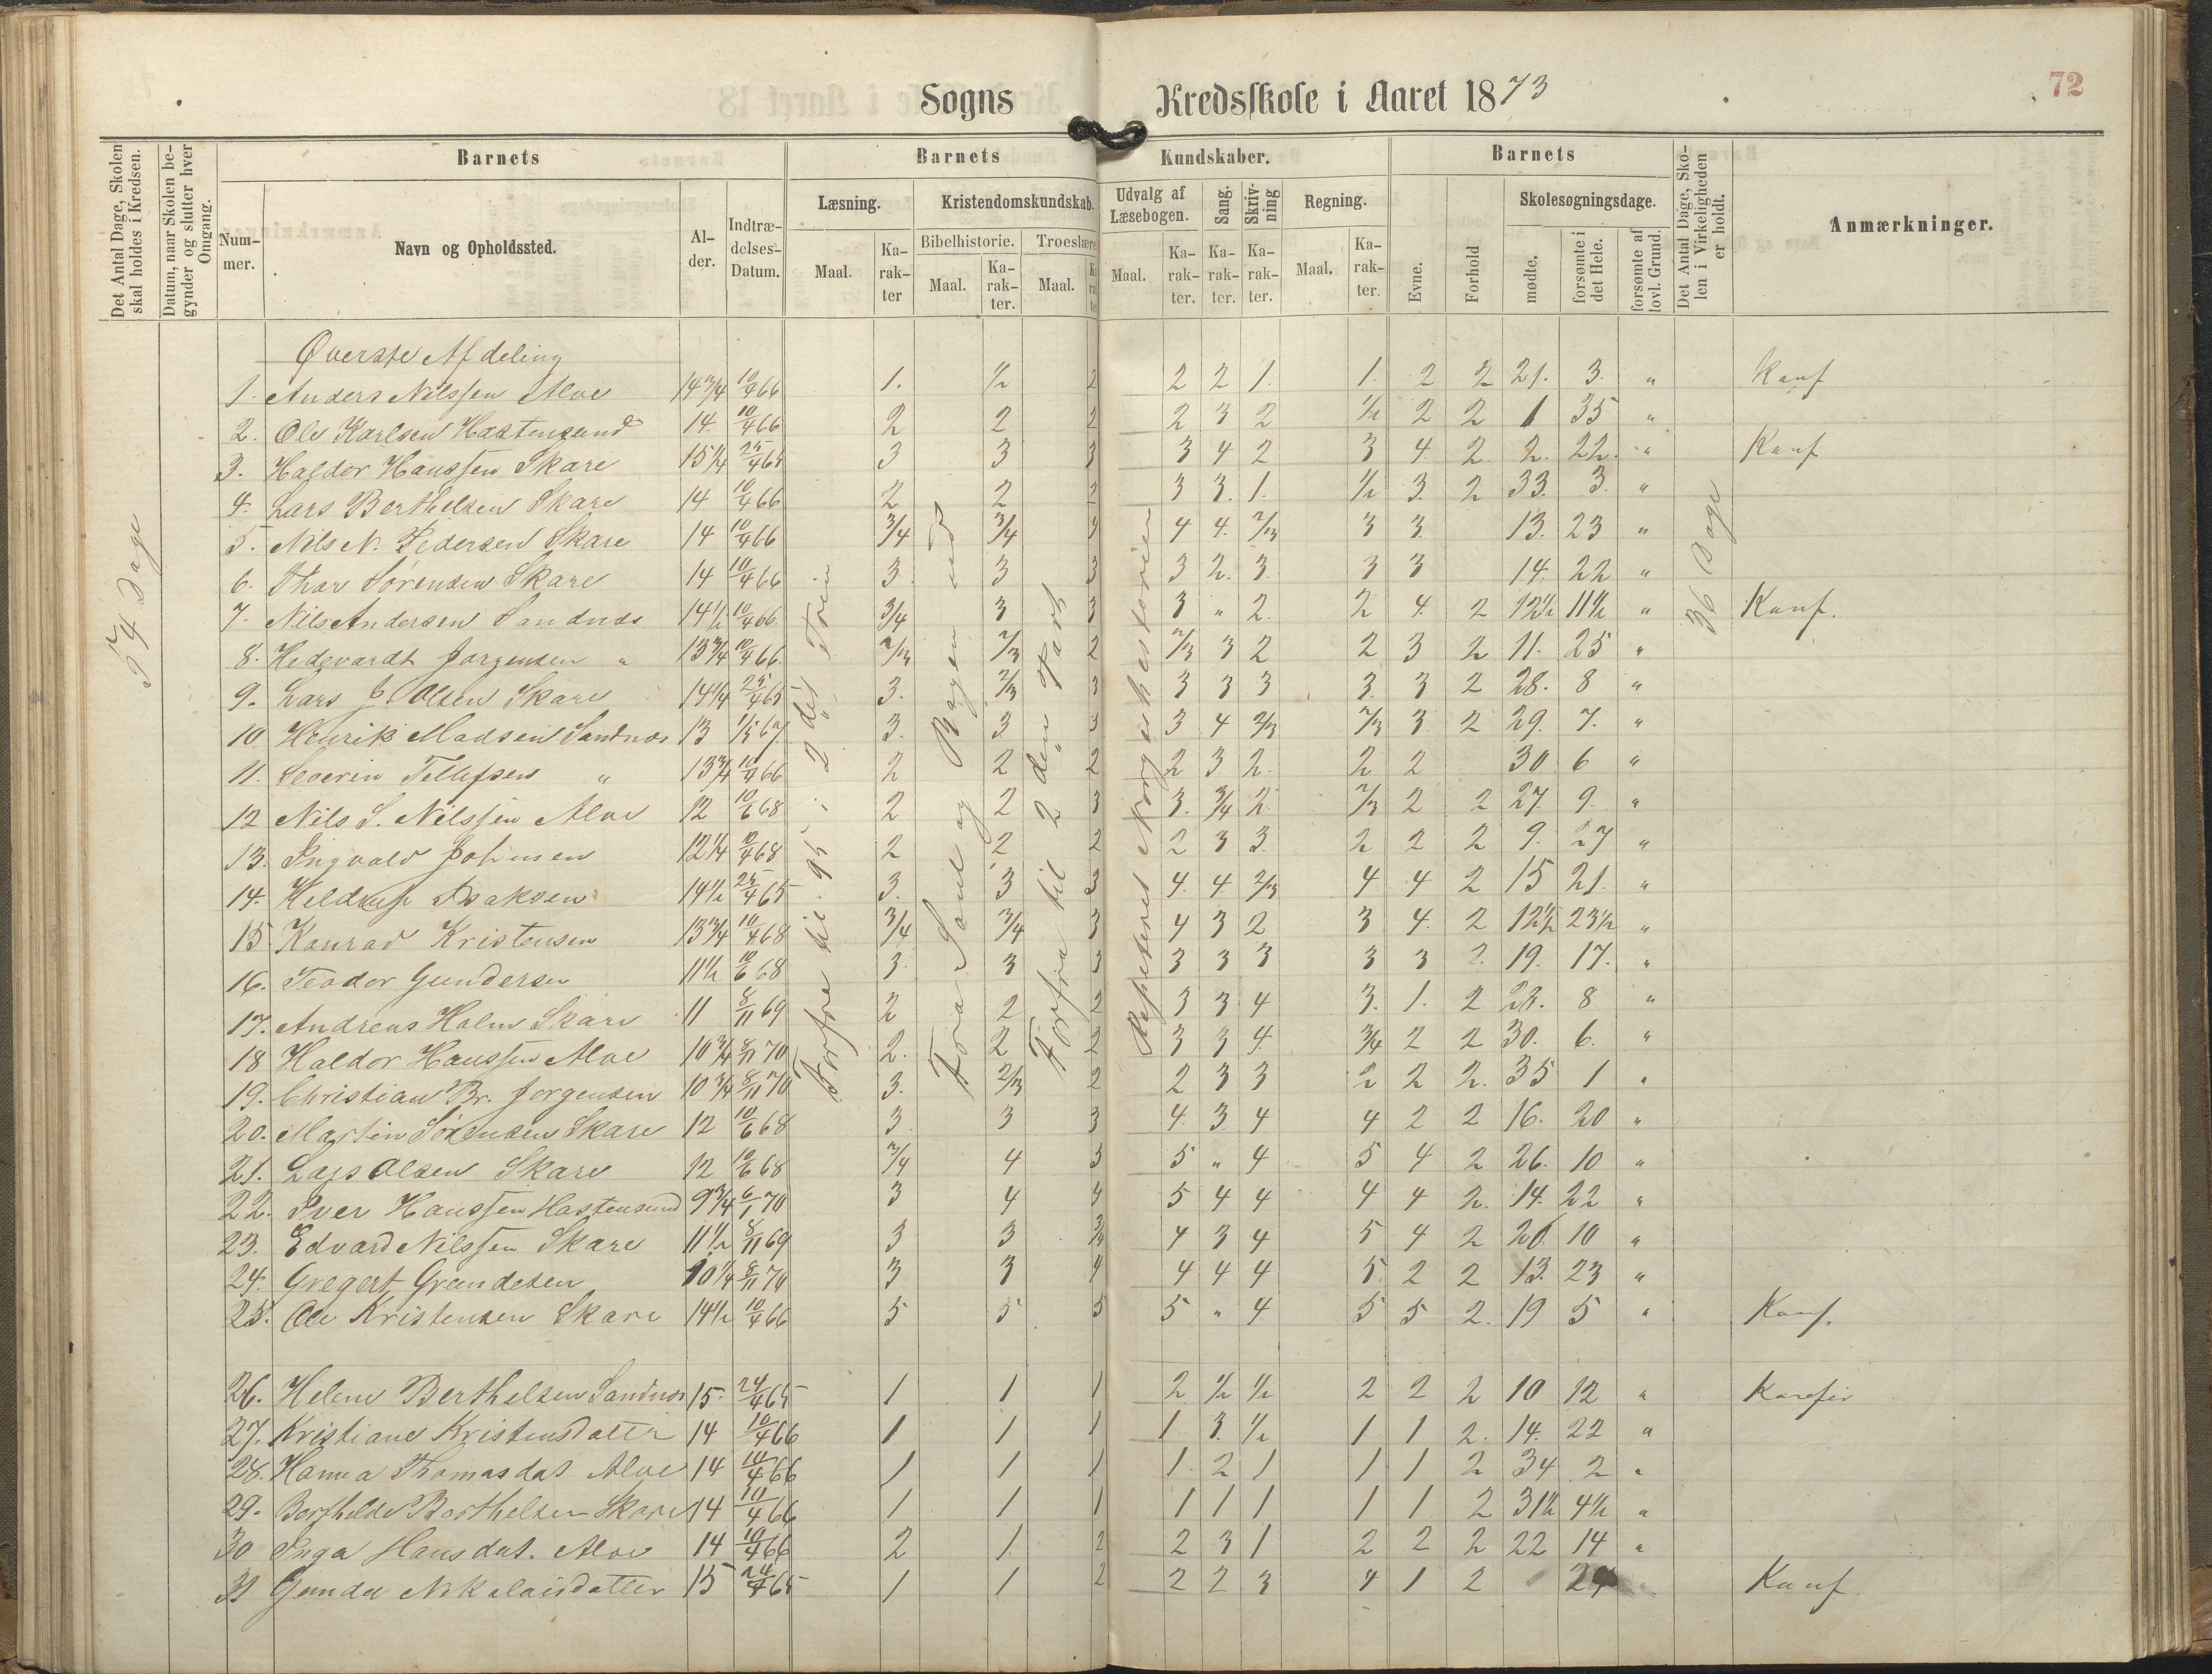 72
Sogns Kredsskole i Aaret 1873
Det Antal Dage, Skolen skal holdes i Kredsen.
Datum, naar Skolen begynder og slutter hver Omgang.
Barnets
Barnets Kundskaber.
Barnets
Det Antal Dage, Skolen i Virkeligheden er holdt.
Anmærkninger.
Nummer.
Navn og Opholdssted.
Alder.
Indtrædelses-Datum.
Læsning.
Kristendomskundskab.
Udvalg af Læsebogen.
Sang.
Skrivning
Regning.
Evne.
Forhold
Skolesøgningsdage.
Bibelhistorie.
Troeslære
Maal.
Karakter
mødte.
forsømte i det Hele.
forsømte af lovl. Grund.
54 Dage
36 Dage
Forfra til 95 i 2det Trin
Fra Saul og Bogen ud
Forfra til 2den Part
Repeteret Norgeshistorien
Øverste Afdeling
1. Anders Nilssen Aloe 14 3/4 10/4 66 1. 1/2 2 2 2 1. 1. 2 2 21. 3. " Konf
2. Ole Karlsen Hastensund 14 10/4 66 2 2 2 2 3 2 1/2 2 2 1 35 "
3. Haldor Hanssen Skare 15 1/4 25/4 65 3 3 3 3 4 2 3 4. 2 2. 22. " Konf
4. Lars Berthelsen Skare 14 10/4 66 2 2 2 3 3. 1. 1/2 3. 2 33. 3. "
5. Nils N. Pedersen Skare 14 10/4 66 3/4 3/4 4 4 4. 2/3 3 3. 13. 23 "
6. Thor Sørensen Skare 14 10/4 66 3. 3 3 3 2. 3. 3 3 14. 22 "
7. Nils Andersen Sandnes 14 1/2 10/4 66. 3/4 3 3 3 " 2. 2 4. 2 12 1/2 11 1/2 " Konf.
8. Hedevardt Jørgensen " 13 3/4 10/4 66. 2/3 2/3 2 2/3 3 2 2 3 2 11. 25 "
9. Lars J. Olsen Skare 14 1/4 25/4 65 3. 2/3 3 3 3 3 3. 3 2 28. 8 "
10 Henrik Madsen Sandnes 13 1/5 67. 3. 3 3 3 4 2/3 2/3 3 2 29. 7. "
11. Severin Tellefsen " 13 3/4 10/4 66 2 2 2 2 3. 2. 2 2 30 6 "
12 Nils S. Nilssen Aloe 12 10/6 68 2 2 3 3. 3/4 2 2/3 2 2 27 9 "
13. Ingvald Johnsen 12 1/4 10/4 68 2 2 2 2 3 3. 2 2 2 9. 27 "
14. Isaksen 14 1/2 25/4 65 3. 3 3 4. 4. 2/3 4 4 2 15 21. "
15. Konrad Kristensen 13 3/4 10/4 68 3/4 3/4 3 4 3 2 3 4. 2 12 1/2 23 1/2 "
16. Teodor Gundersen 11 1/2 10/6 68 3. 3 3 3 3 3 3 3 2. 19. 17. "
17. Andreas Holm Skare 11 8/11 69 2 2 2 3 3. 4 3. 1. 2 28. 8 "
18 Haldor Hanssen Aloe 10 3/4 8/11 70 2. 2 2 3 3 4 3/4 2 2 30. 6. "
19. Christian Br. Jørgensen 10 3/4 8/11 70 3. 2/3 2 2 3 3 2 2 2. 35 1 "
20. Martin Sørensen Skare 12 10/6 68 3. 3 3 4. 3. 4 4 2 2 16. 20 "
21. Lars Olsen Skare 12 10/6 68 3/4 4 3 5 " 4 5 4 2 26. 10 "
22. Iver Hanssen Hastensund 9 3/4 6/1 70 3 4 4 5 4 4 4 4 2. 14. 22 "
23. Edvard Nilssen Skare 11 1/2 8/11 69 3 3 3/4 4 3 4 5 4 2 26 10 "
24. Gregert Grundesen 10 1/4 8/11 70 3 3 4 4 4 4 5 2 2 13. 23 "
25. Ole Kristensen Skare 14 1/2 10/4 66 5 5 5 5 " 4 5 5 2. 19 5 " Konf.
26. Helene Berthelsen Sandnes 15. 24/4 65 1 1 1 2 1/2 1/2 2 2 2 10 12 "
27. Kristiane Kristensdatter 14 10/4 66 1 1 1 1 3. 1/2 1 1 2. 14. 22 "
28. Hanna Thomasdat. Aloe 14 10/4 66 1 1 1 1. 2 1 1 1 2 34 2 "
29. Berthelsen Skare 14 10/4 66 1 1 1 1 1 1 1 1 2 31 1/2 4 1/2 "
30 Inga Hansdat. Aloe 14 10/4 66 2 1 2 2 3 1 2 2 2 22 14 "
31 Gunda Nikolaisdatter 15 24/4 65 1 1 2 2 2 3 4 1 2 Konf